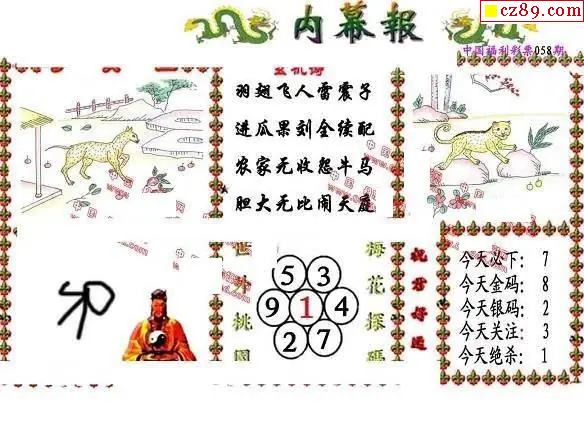 cz89.com
内幕報
中国福利彩票058期
玄机诗
羽翅飞人雷震子
进瓜果刘全续配
农家无收怨牛马
胆大无比闹天庭
世外桃園
5 3
9 1 4
2 7
梅花探碼
祝君好运
今天必下: 7
今天金码: 8
今天银码: 2
今天关注: 3
今天绝杀: 1